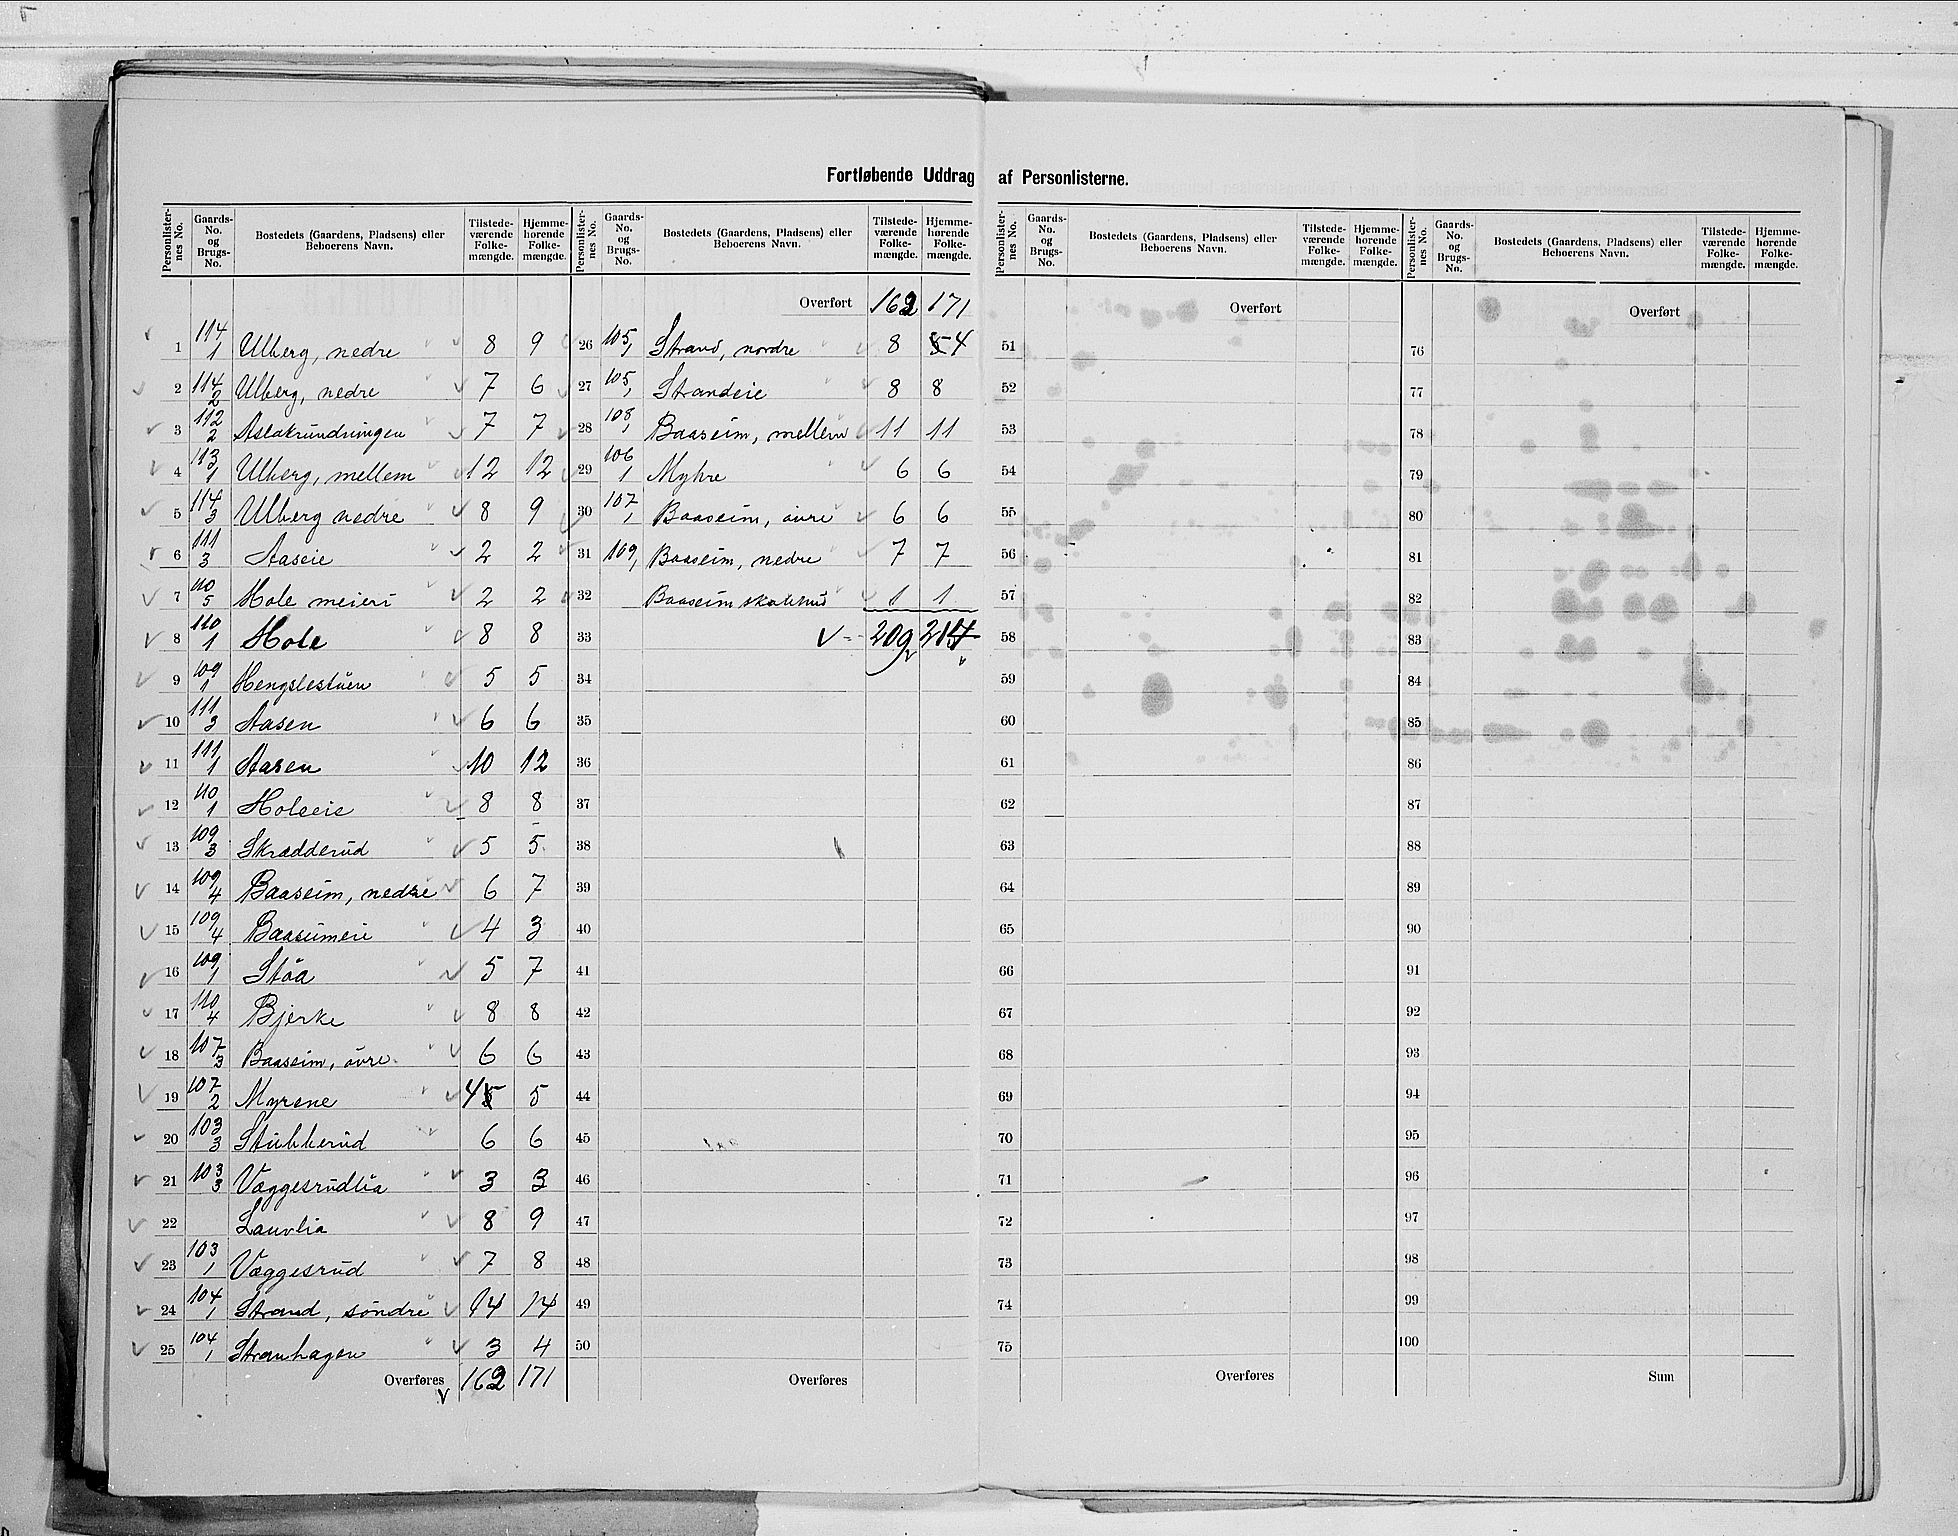 Fortløbende Uddrag af Personlisterne.
Personlisternes No. Gaards-No. og Brugs-No. Bostedets (Gaardens, Pladsens) eller Beboerens Navn. Tilstedeværende Folkemængde. Hjemmehørende Folkemængde.
1 114/1 Ulberg, nedre 8 9
2 114/2 Ulberg, nedre 7 6
3 112/2 Aslakrundningen 7 7
4 113/1 Ulberg, mellem 12 12
5 114/3 Ulberg nedre 8 9
6 111/3 Aaseie 2 2
7 110/5 Hole meieri 2 2
8 110/1 Hole 8 8
9 109/1 Hengslestuen 5 5
10 111/3 Aasen 6 6
11 111/1 Aasen 10 12
12 110/1 Holeeie 8 8
13 109/3 Skrædderud 5 5
14 109/4 Baaseim, nedre 6 7
15 109/4 Baaseimeie 4 3
16 109/1 Stöa 5 7
17 110/4 Bjerke 8 8
18 107/3 Baaseim, øvre 6 6
19 107/2 Myrene 4 5
20 103/3 Stubberud 6 6
21 103/3 Væggesrudlia 3 3
22 Lauvlia 8 9
23 103/1 Væggesrud 7 8
24 104/1 Strand, søndre 14 14
25 104/1 Stranhagen 3 4
Overføres 162 171
Personlisternes No. Gaards-No. og Brugs-No. Bostedets (Gaardens, Pladsens) eller Beboerens Navn. Tilstedeværende Folkemængde. Hjemmehørende Folkemængde.
Overført 162 171
26 105/1 Strand, nordre 8 4
27 105/1 Strandeie 8 8
28 108/1 Baaseim, mellem 11 11
29 106/1 Myhre 6 6
30 107/1 Baaseim, øvre 6 6
31 109/1 Baaseim, nedre 7 7
32 Baaseim skolehus 1 1
33 209 214
34
35
36
37
38
39
40
41
42
43
44
45
46
47
48
49
50
Overføres
Personlisternes No. Gaards-No. og Brugs-No. Bostedets (Gaardens, Pladsens) eller Beboerens Navn. Tilstedeværende Folkemængde. Hjemmehørende Folkemængde.
Overført
51
52
53
54
55
56
57
58
59
60
61
62
63
64
65
66
67
68
69
70
71
72
73
74
75
Overføres
Personlisternes No. Gaards-No. og Brugs-No. Bostedets (Gaardens, Pladsens) eller Beboerens Navn. Tilstedeværende Folkemængde. Hjemmehørende Folkemængde.
Overført
76
77
78
79
80
81
82
83
84
85
86
87
88
89
90
91
92
93
94
95
96
97
98
99
100
Sum